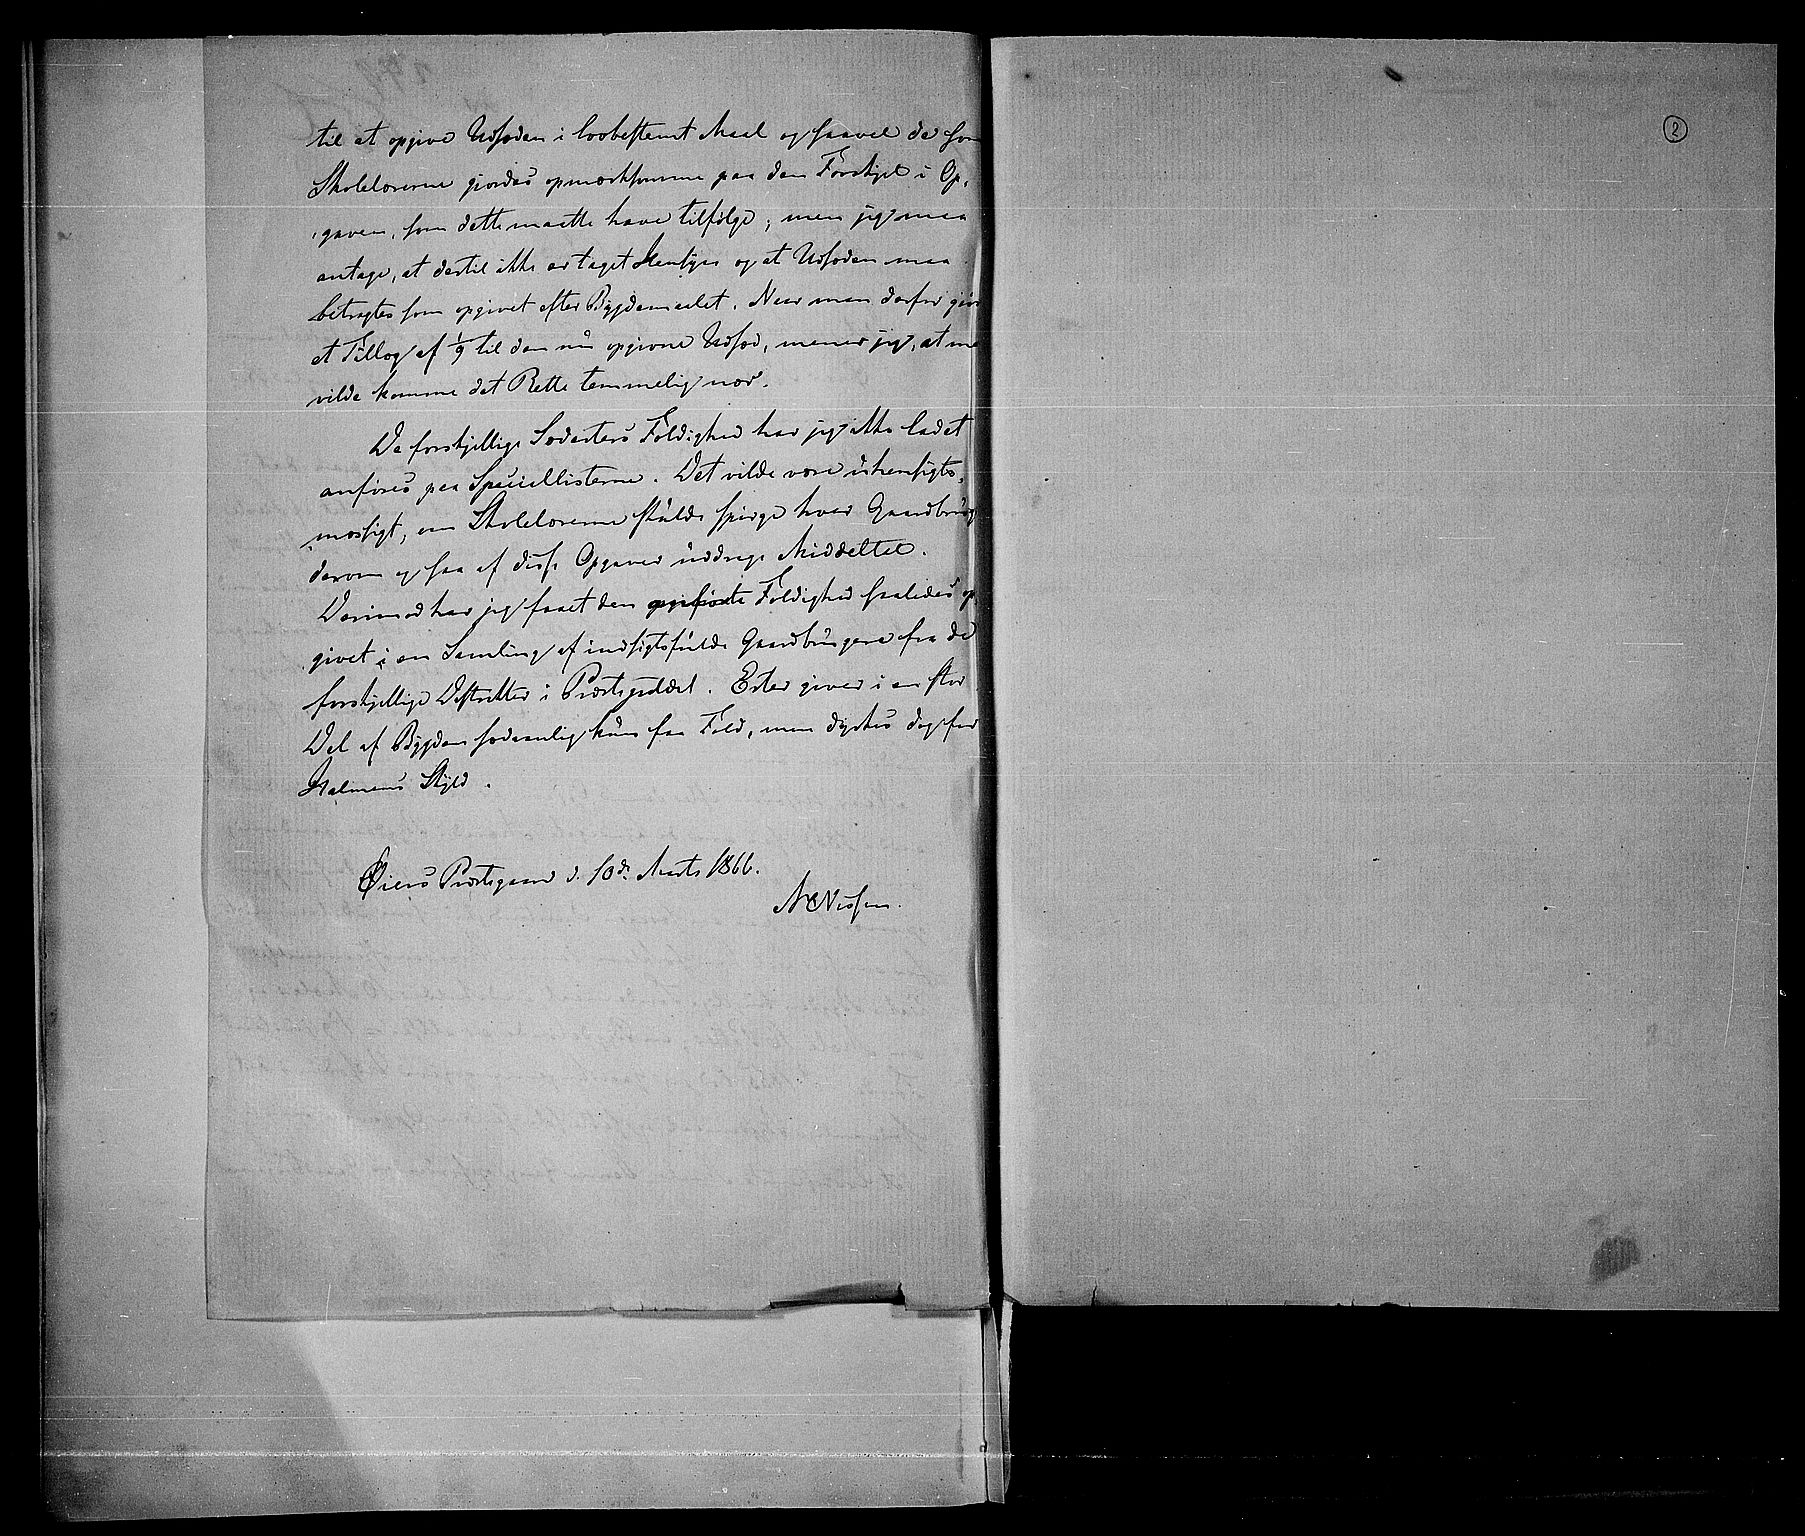 til at opgive Udsæden i lovbestemt Maal og saavel de som
Skolelærerne gjordes opmærksomme paa den Forskjel i Op-
gaven, som dette maatte have tilfølge; men jeg maa
antage, at dertil ikke er taget Hensyn og at Udsæden maa
betragtes som opgivet efter Bygdemaalet. Naar man derfor gjør
et Tillæg af 1/9 til den nu opgivne Udsæd, mener jeg, at ma
vilde komme det Rette temmelig nær.
De forskjellige Sædarters Foldighed har jeg ikke ladet
anføres paa Speciallisterne. Det vilde være uhensigts-
mæssigt, om Skolelærerne skulde spørge hver Gaardbrug
derom og saa af disse Opgaver uddrage Middeltal.
Derimod har jeg faaet den Foldighed saaledes op
givet i en Samling af indsigtsfulde Gaardbrugere fra de
forskjellige Distrikter i Præstegjeldet. Erter giver i en stor
Del af Bygden sædvanlig kun faa Fold, men dyrkes dog for
Halmens Skyld.
Øiers Præstegaard d. 10de Marts 1866.
Nissen.
2